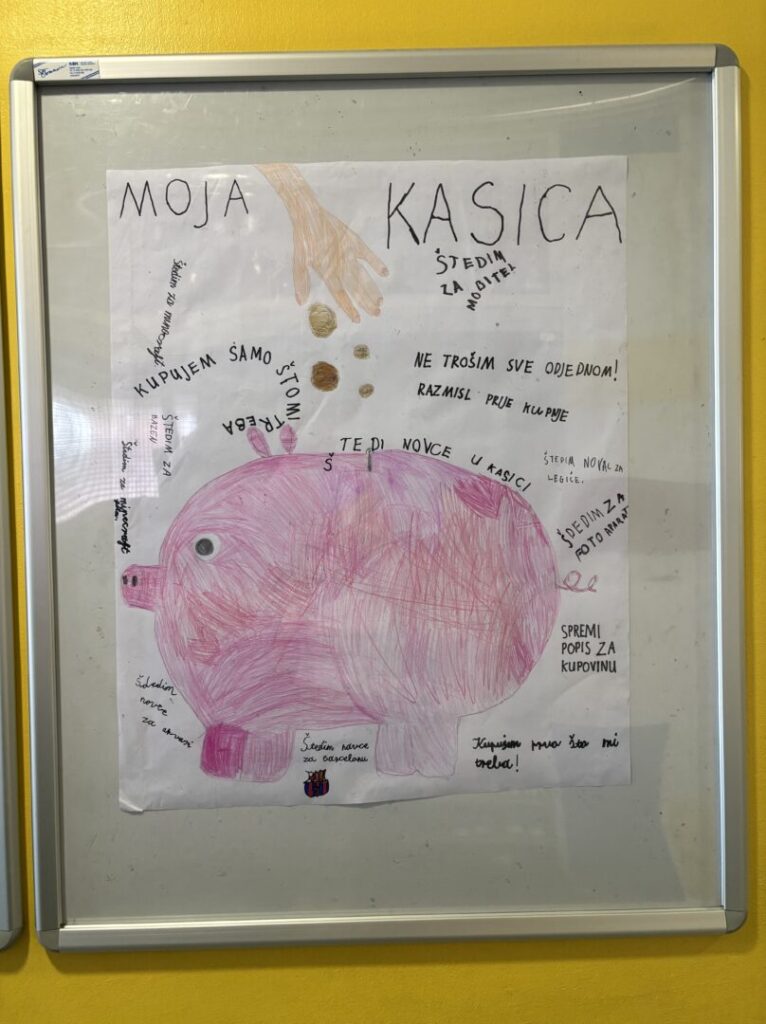 MOJA KASICA
ŠTEDIM
ZA
MOBITEL
Štedim za minecraft
KUPUJEM SAMO ŠTO MI TREBA
NE TROŠIM SVE ODJEDNOM!
RAZMISL PRIJE KUPNJE
ŠTEDIM ZA
BAZEN
ŠTEDI NOVCE U KASICI
ŠTEDIM NOVAC ZA
LEGIĆE.
Štedim za minecraft
ŠDEDIM ZA
FOTO APARAT
SPREMI
POPIS ZA
KUPOVINU
Šdedim
novce
za
Štedim novce
za barcelonu
Kupujem prvo šta mi
treba!